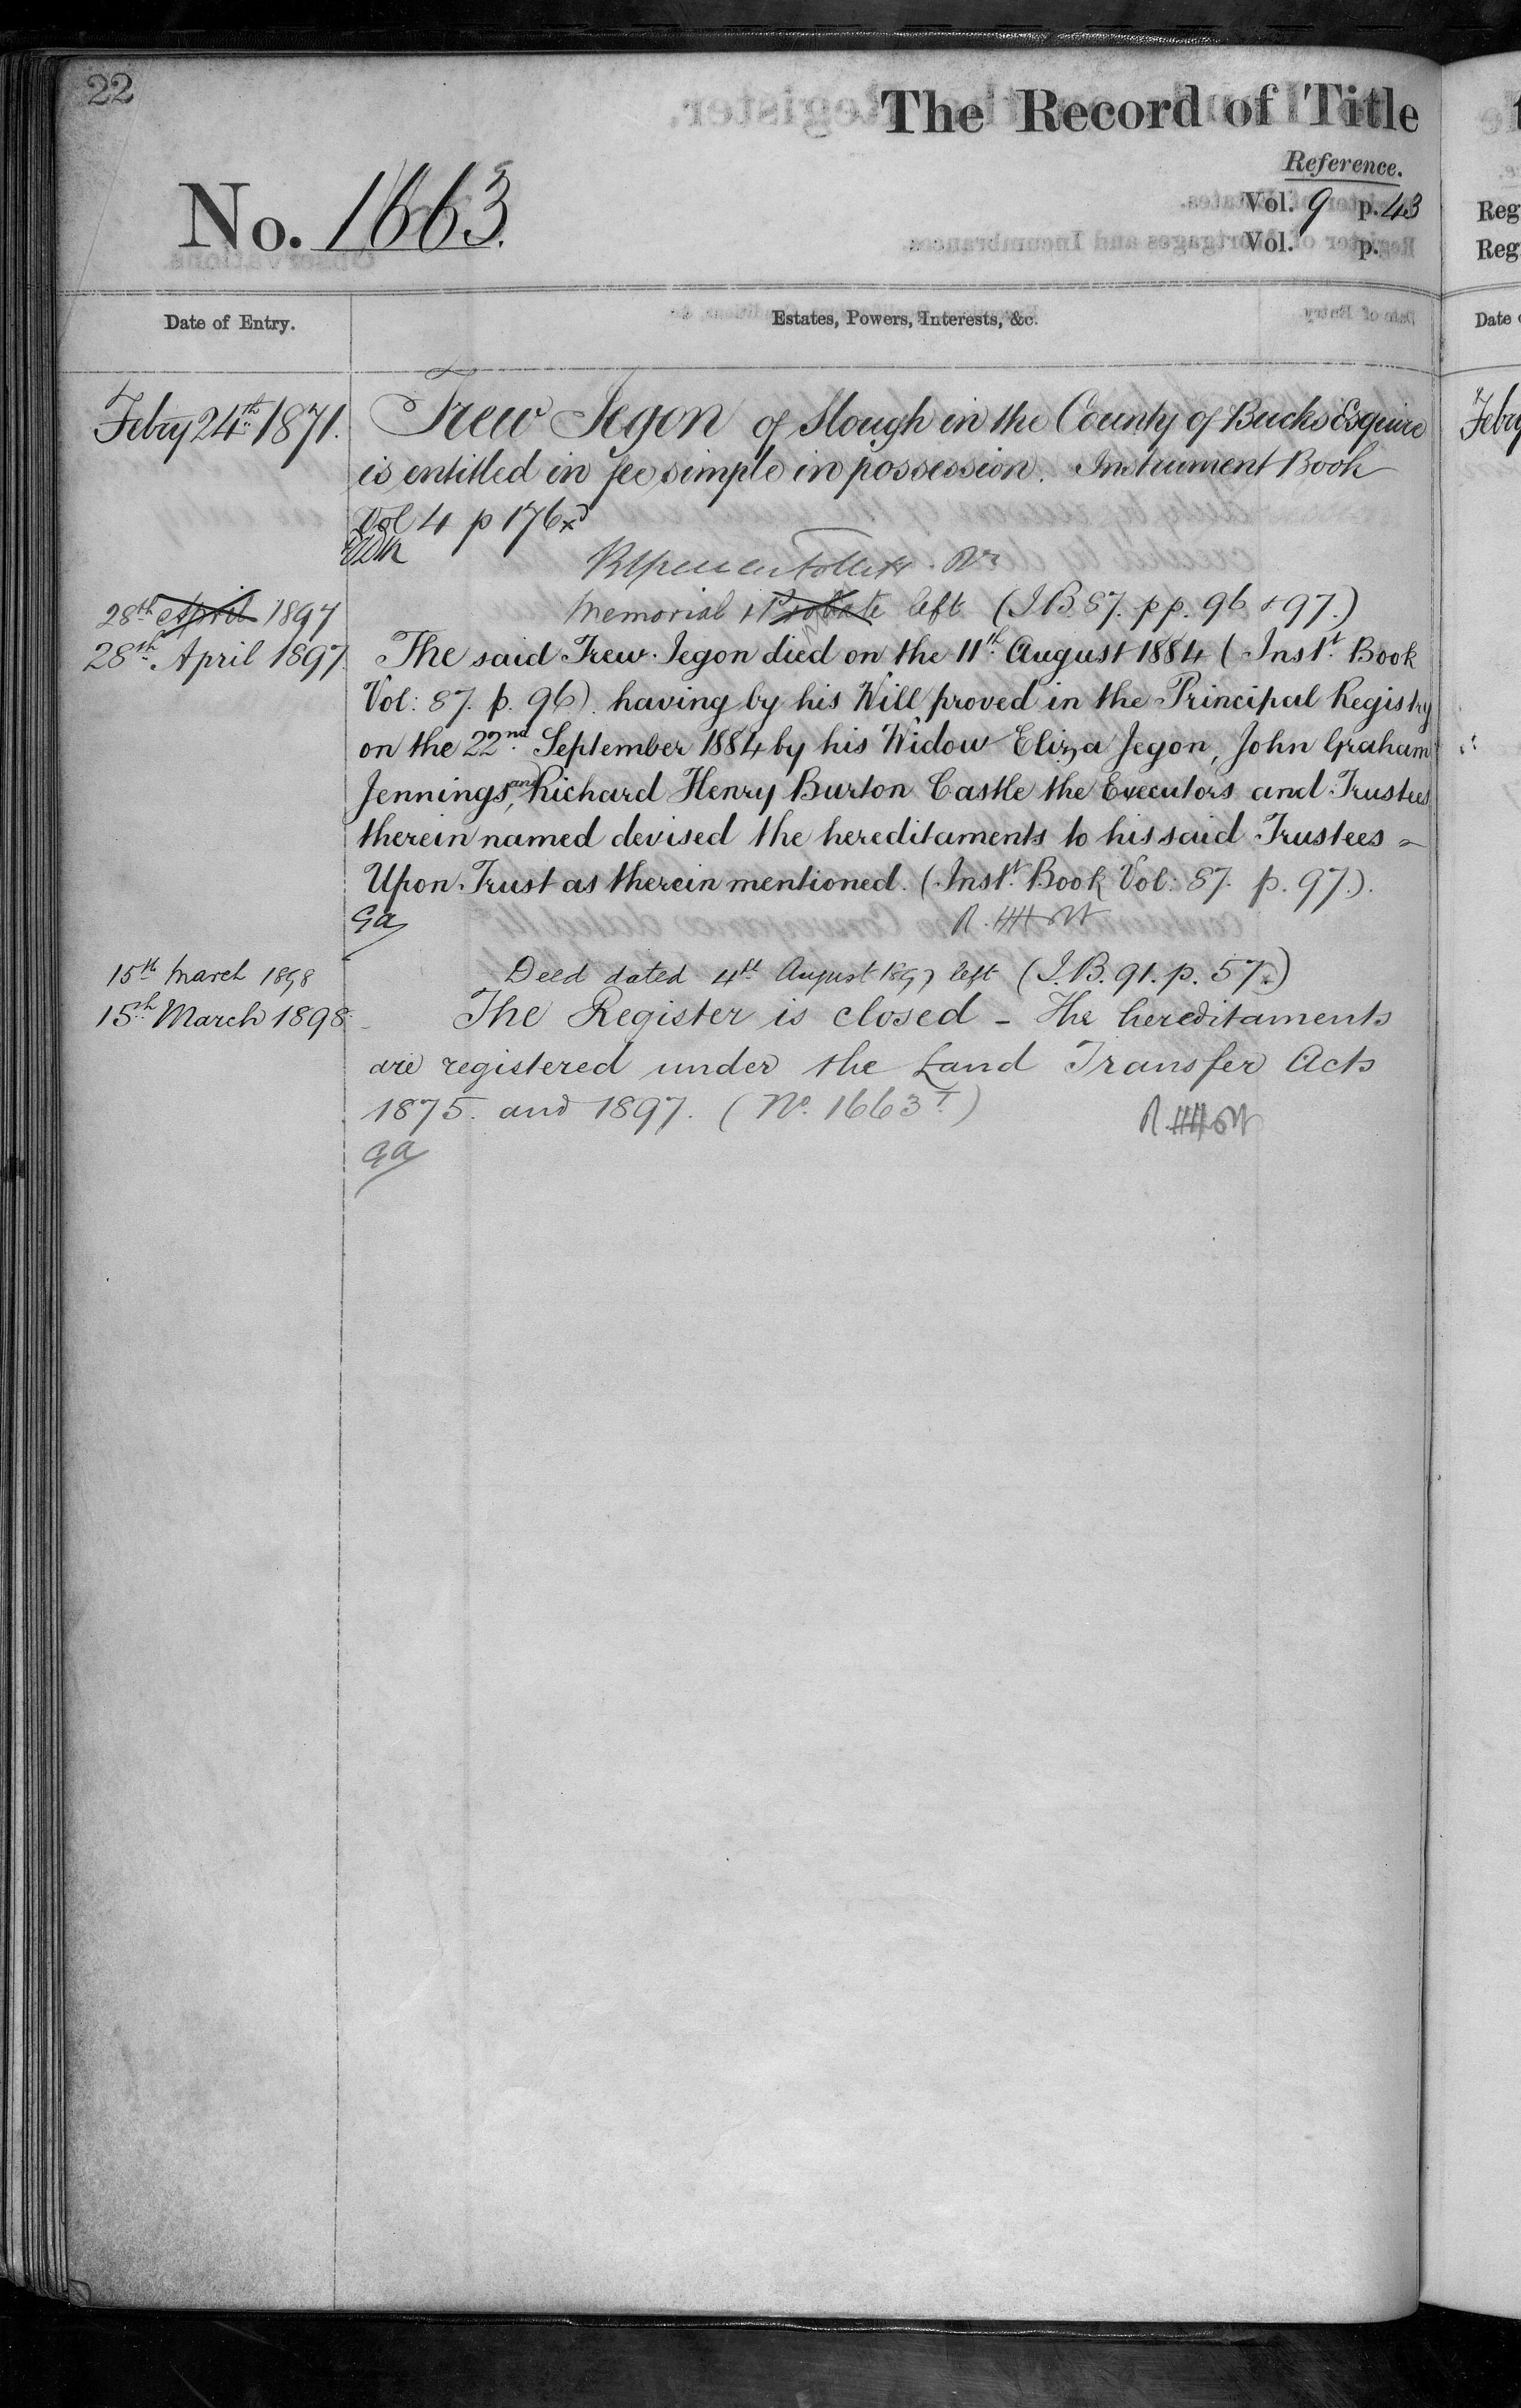 22
The Record of Title
Reference.
No. 1663.
Vol. 9 p. 43
Vol. p.
Date of Entry.
Estates, Powers, Interests, &c.
Febry 24th 1871.
Trew Jegon of Slough in the County of Bucks Esquire
is entitled in fee simple in possession. Instrument Book
Vol 4 p 176
28th April 1897
Memorial & Probate left (I.B. 87. pp. 96 & 97.)
28th April 1897
The said Trew Jegon died on the 11th August 1884 (Instt. Book
Vol: 87. p. 96) having by his Will proved in the Principal Registry
on the 22nd September 1884 by his Widow Eliza Jegon, John Graham
Jennings, and Richard Henry Burton Castle the Executors and Trustees
therein named devised the hereditaments to his said Trustees
Upon Trust as therein mentioned. (Instt. Book Vol: 87. p. 97.).
15th March 1898
Deed dated 4th August 1897 left (I.B. 91. p. 57.)
15th March 1898
The Register is closed - The hereditaments
are registered under the Land Transfer Acts
1875. and 1897. (No. 1663T.)
Reg
Reg
Date
Febry